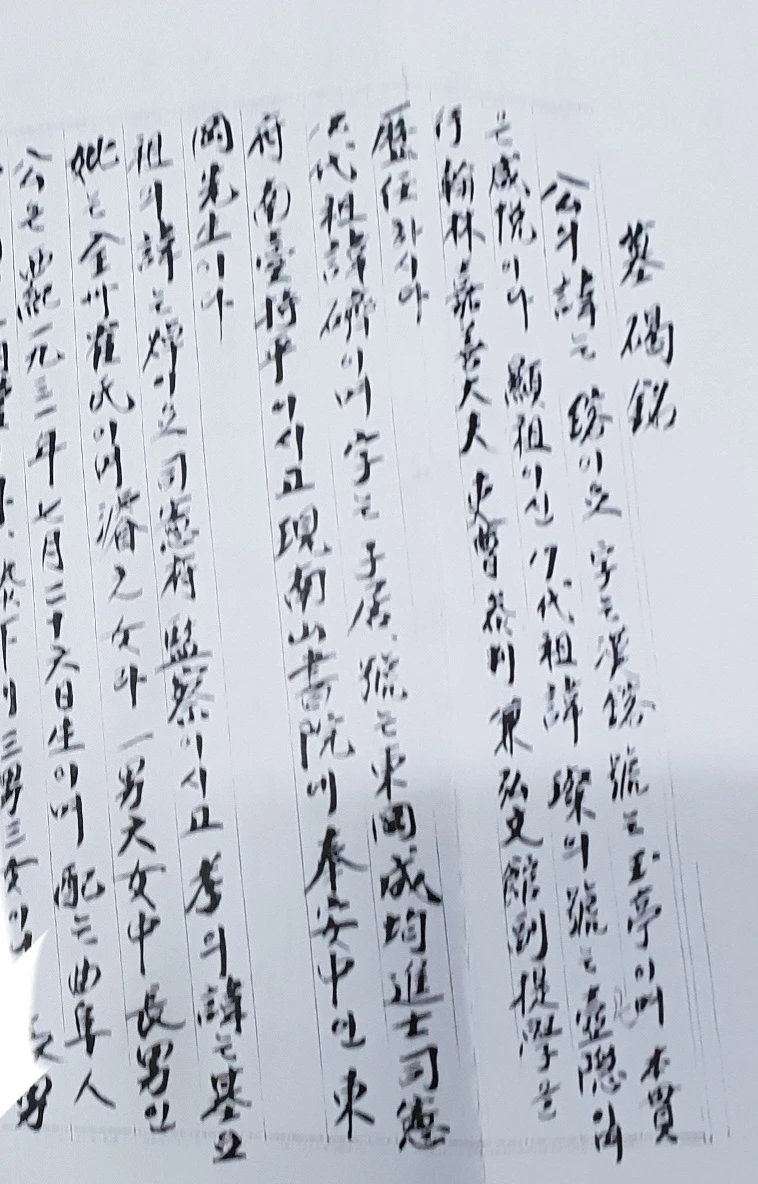 墓碣銘
公의 諱는 鎔이요 字는 漢鎔 號는 玉亭이며 本貫
은 咸悅이다 顯祖이신 17代祖 諱 璨의 號는 壺隱이며
行 翰林 嘉善大夫 吏曹參判 兼 弘文館 副提學을
歷任하시다
六代祖 諱 礩이며 字는 子居, 號는 東岡 成均進士 司憲
府 南臺 持平이시고 現 南山書院에 奉安中인 東
岡先生이다
祖의 諱는 이요 司憲府 監察이시고 考의 諱는 基
妣는 全州崔氏이며 濬元 女다 一男六女中 長男인
公은 西紀一九三一年七月二十六日生이며 配는 曲阜人
三男三女